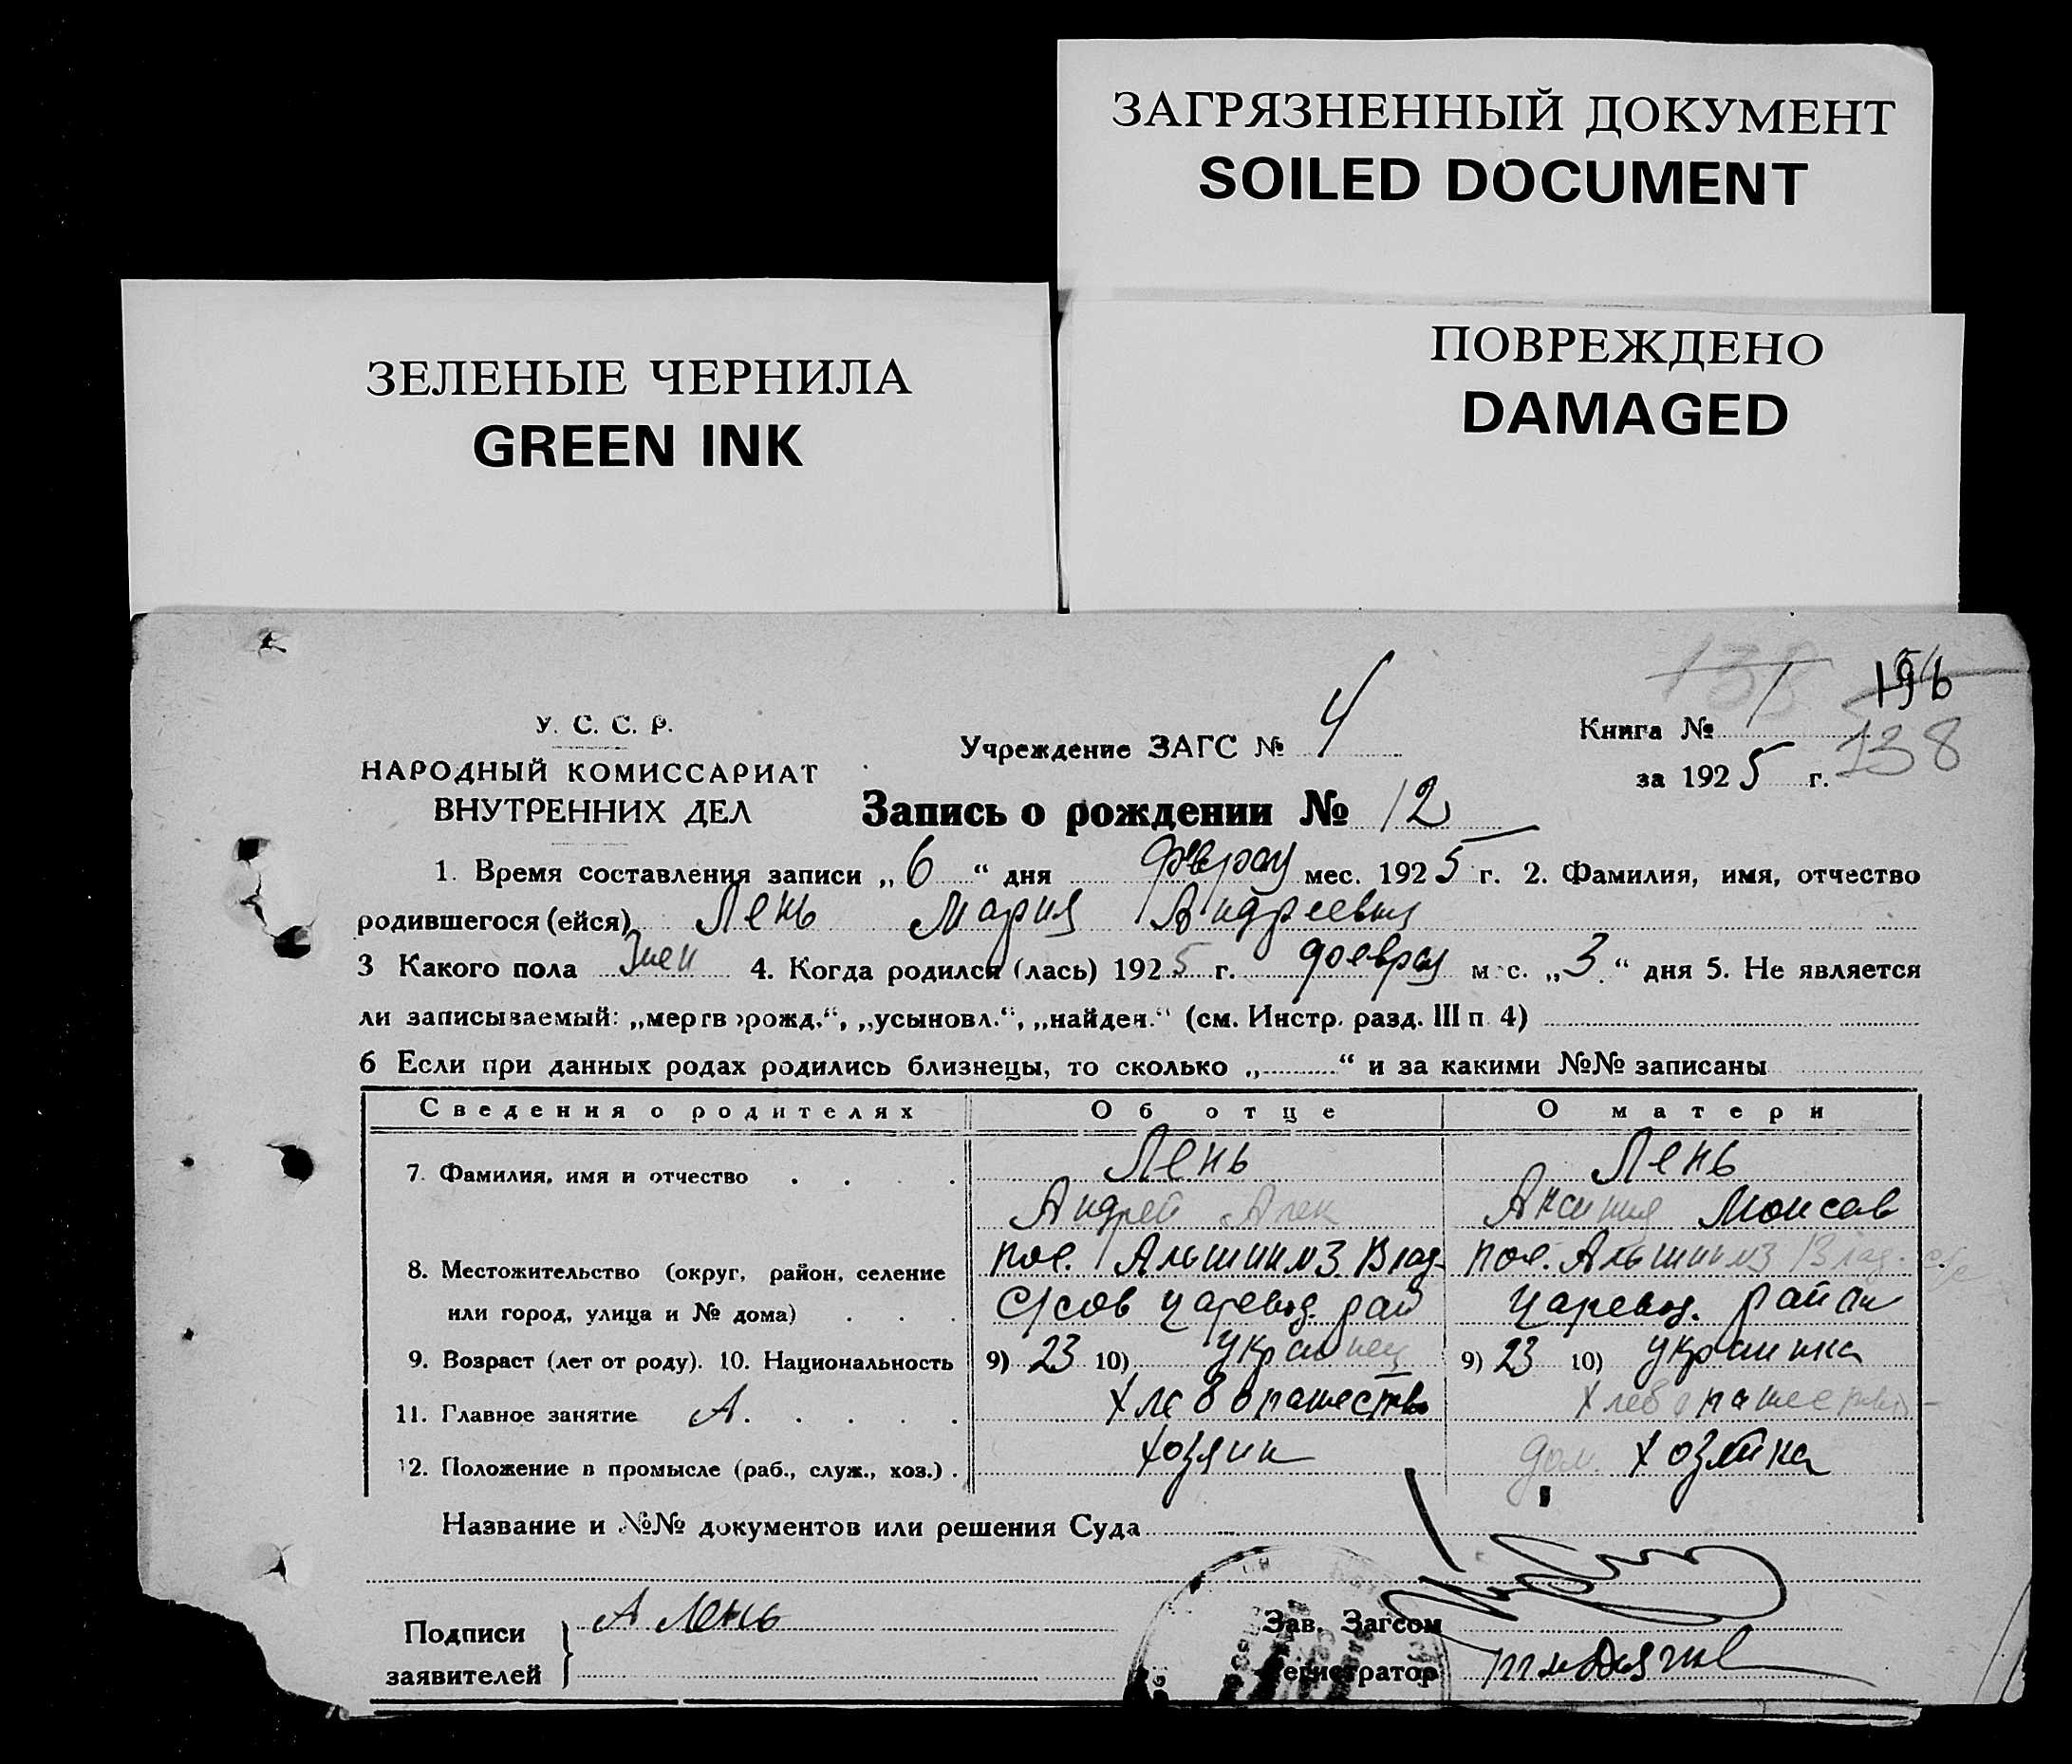 ЗАГРЯЗНЕННЫЙ ДОКУМЕНТ
SOILED DOCUMENT
ЗЕЛЕНЫЕ ЧЕРНИЛА
GREEN INK
ПОВРЕЖДЕНО
DAMAGED
138
У. С. С. Р.
НАРОДНЫЙ КОМИССАРИАТ
ВНУТРЕННИХ ДЕЛ
Учреждение ЗАГС № 4
Книга № 1
за 1925 г. 138
Запись о рождении № 12
1. Время составления записи „6“ дня феврал мес. 1925 г. 2. Фамилия, имя, отчество
родившегося (ейся) Лень Мария Андреевна
3 Какого пола Жен 4. Когда родился (лась) 1925 г. феврал мес. „3“ дня 5. Не является
ли записываемый: „мертворожд.“, „усыновл.“, „найден.“ (см. Инстр. разд. III п. 4)
6 Если при данных родах родились близнецы, то сколько „ “ и за какими №№ записаны
Сведения о родителях Об отце О матери
7. Фамилия, имя и отчество Лень Лень
Андрей Алек Аксиния Моисев
8. Местожительство (округ, район, селение пос. Влад- пос. Влад.
или город, улица и № дома) царевод. рай царевод. район
9. Возраст (лет от роду). 10. Национальность 9) 23 10) украинец 9) 23 10) украинка
11. Главное занятие А. Хлебопашество Хлебопашество
12. Положение в промысле (раб., служ., хоз.) хозяин дом. хозяйка
Название и №№ документов или решения Суда
Подписи А Лень
заявителей
Зав. Загсом
Регистратор